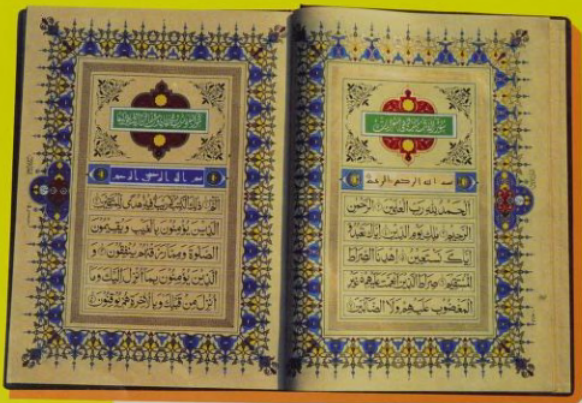 بسم الله الرحمن الرحيم
الحمد لله رب العالمين الرحمن
الرحيم مالك يوم الدين إياك نعبد و
إياك نستعين اهدنا الصراط
المستقيم صراط الذين أنعمت عليهم غير
المغضوب عليهم ولا الضالين
بسم الله الرحمن الرحيم
الم ذلك الكتاب لا ريب فيه هدى للمتقين
الذين يؤمنون بالغيب ويقيمون
الصلوة ومما رزقناهم ينفقون و
الذين يؤمنون بما أنزل إليك وما
أنزل من قبلك وبالآخرة هم يوقنون